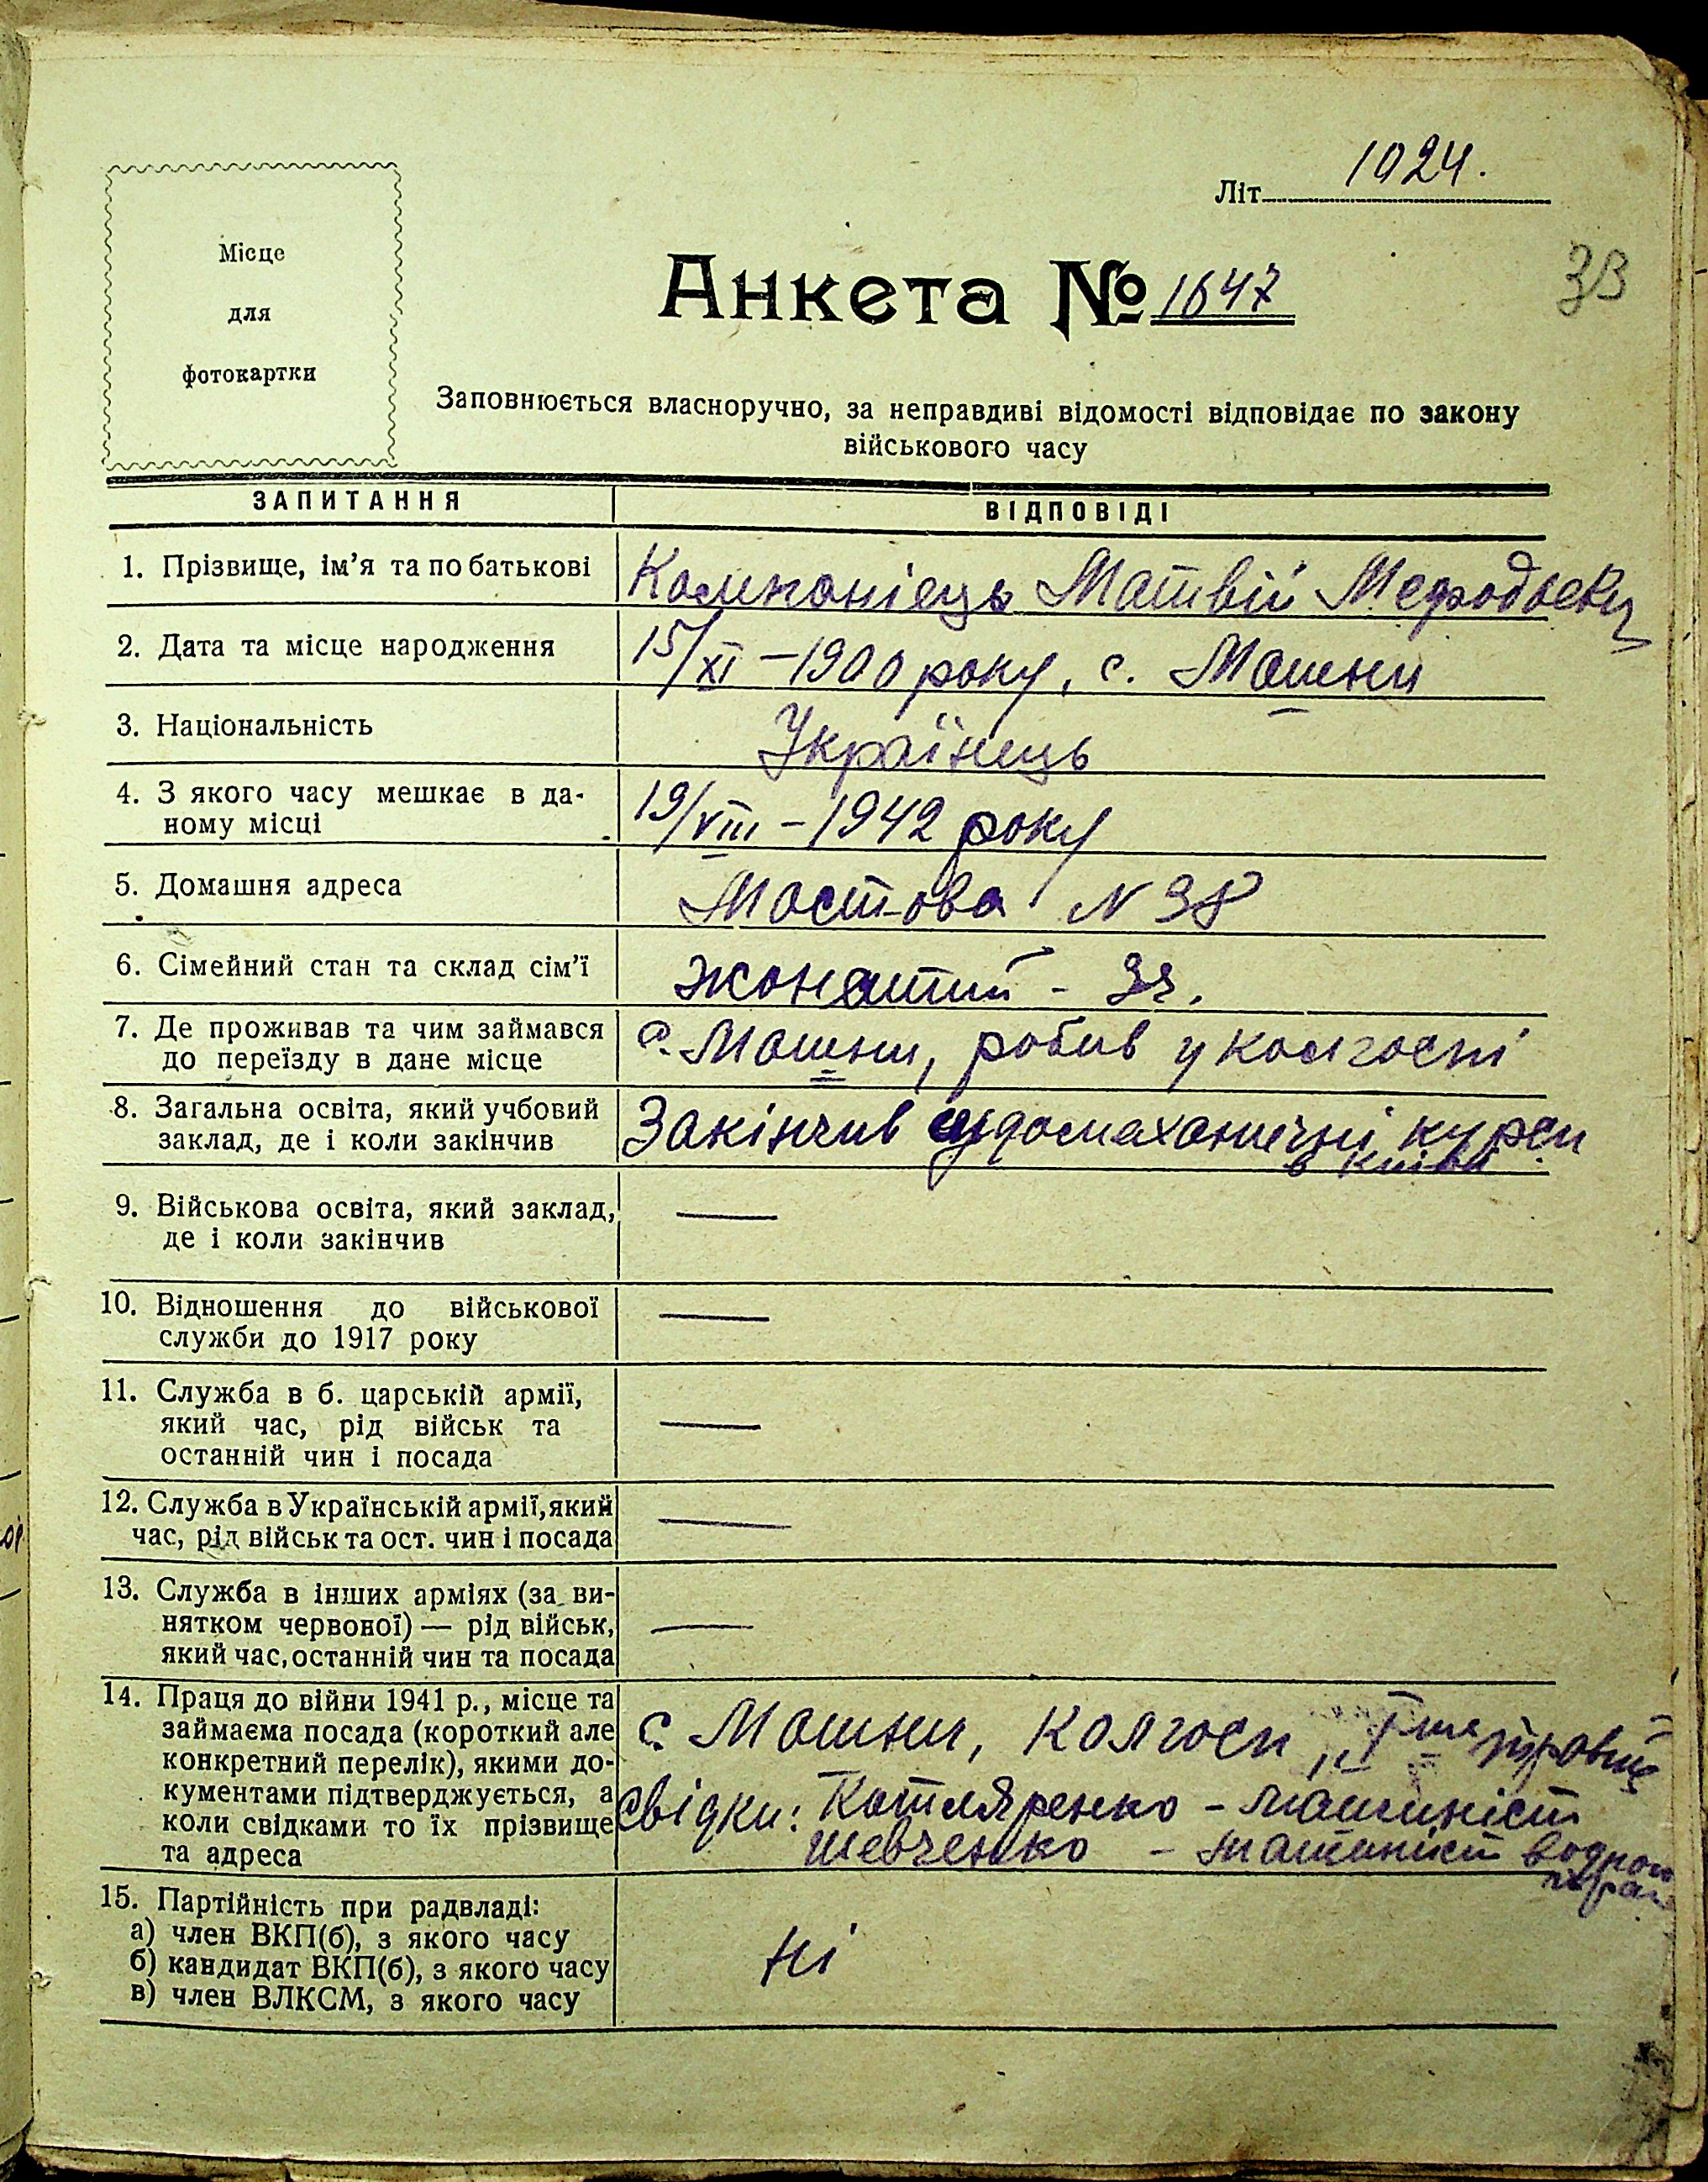 Літ. 1924.
33
Місце
для
фотокартки
Анкета № 1647
Заповнюється власноручно, за неправдиві відомості відповідає по закону
військового часу
ЗАПИТАННЯ ВІДПОВІДІ
1. Прізвище, ім'я та по батькові Компонієць Матвій Мефодьєвич
2. Дата та місце народження 15/XI – 1900 року, с. Мошни
3. Національність Українець
4. З якого часу мешкає в да-
ному місці 19/VIII – 1942 року
5. Домашня адреса Мостова N 38
6. Сімейний стан та склад сім'ї жонатий - 3ч.
7. Де проживав та чим займався с. Мошни, робив у колгоспі
до переїзду в дане місце
8. Загальна освіта, який учбовий Закінчив судомеханичні курси
заклад, де і коли закінчив в Київі
9. Військова освіта, який заклад, —
де і коли закінчив
10. Відношення до військової —
служби до 1917 року
11. Служба в б. царській армії,
який час, рід військ та —
останній чин і посада
12. Служба в Українській армії, який —
час, рід військ та ост. чин і посада
13. Служба в інших арміях (за ви-
нятком червоної) — рід військ, —
який час, останній чин та посада
14. Праця до війни 1941 р., місце та
займаєма посада (короткий але с. Мошни, колгосп, "І травня"
конкретний перелік), якими до-
кументами підтверджується, а Свідки: Котляренко – машиніст
коли свідками то їх прізвище Шевченко – машиніст водного
та адреса
15. Партійність при радвладі:
а) член ВКП(б), з якого часу
б) кандидат ВКП(б), з якого часу ні
в) член ВЛКСМ, з якого часу